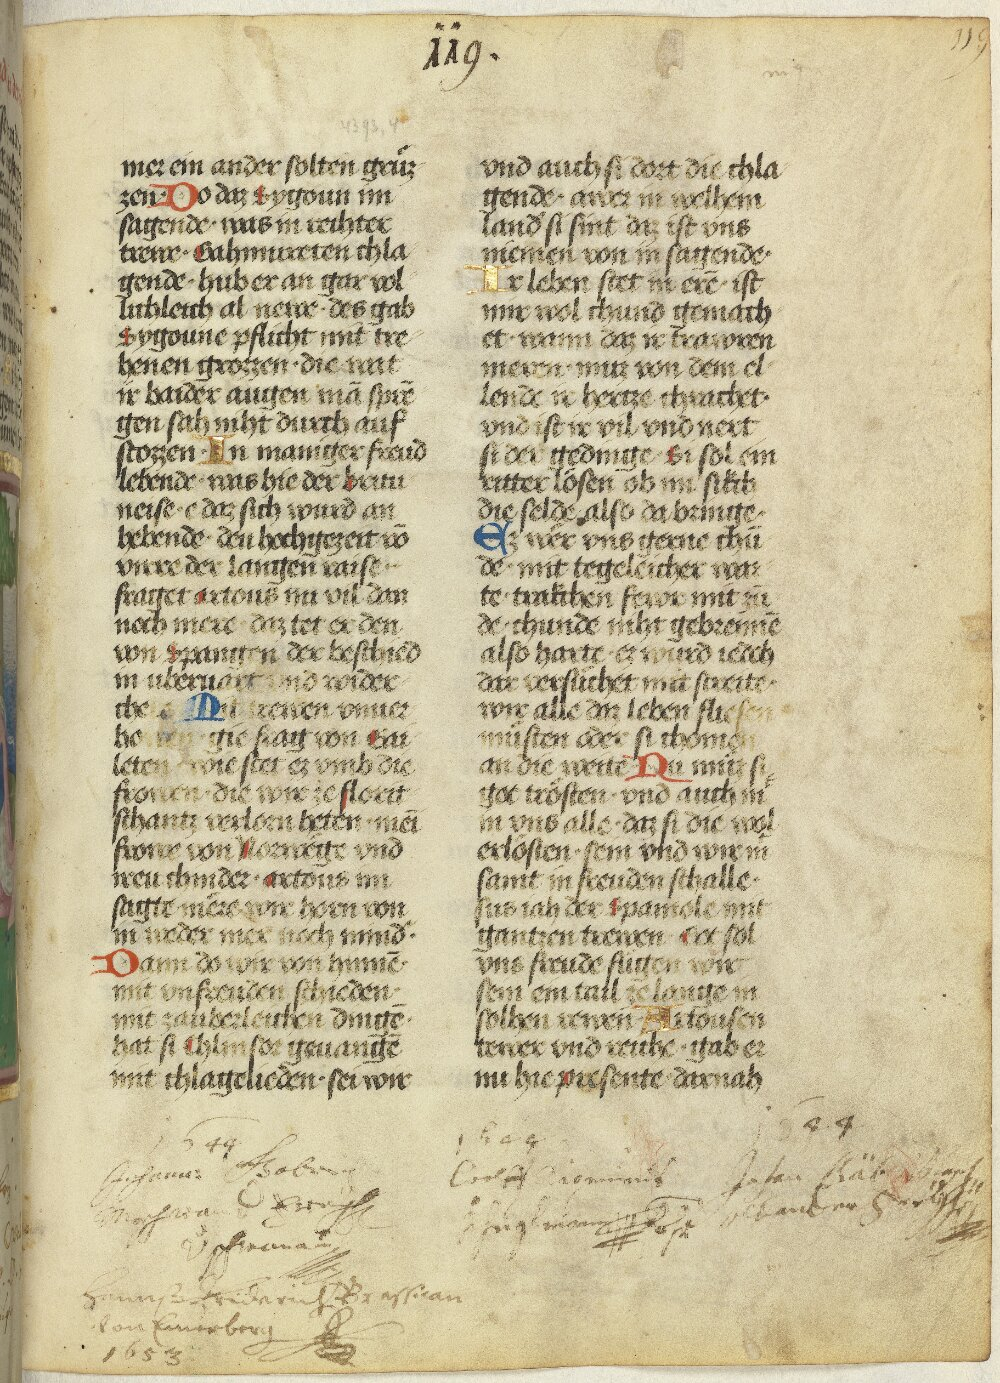 119.
119
mer ein ander solten grüz
zen· Do daz Sygoun im
sagende· was in rehter
trewe· Gahmureten chla
gende· hub er an gar vol
lichleich al newe· des gab
Sygoune pflicht mit tre
henen grozzen· die mit
ir baider augen mā sprē
gen sah niht durch auf
stozzen· In maniger freud
lebende· was hie der britu
neise· e daz sich wurd an
hebende· den hochgezeit võ
vnrre der langen raise·
fraget artous nu vil dan
noch mere· daz tet er den
von Spangen der beschied
in uberuart vnd wider
Mit trewen vnuer
gie frag von Gai
leten· wie stet ez vmb die
frowen· die wir ze florit
schantz verlorn heten· mei
frowe von Norwege vnd
ireu chinder· artous im
sagte mere· wir horn von
in weder mer noch minder·
Dann do wir von hinnē·
mit vnfreuden schieden·
mit zauberleichen dingē·
hat si Chlinsor geuangē
mit chlagelieden· sei wir
vnd auch si dort die chla
gende· awer in welhem
land si sint daz ist vns
niemen von in sagende·
Ir leben stet in erē· ist
mir wol chund gemach
et· wann daz ir trawren
meren· muz von dem el
lende ir hertze chrachet·
vnd ist ir vil· vnd nert
si der gedinge· Si sol ein
ritter lösen ob im sölch
die selde also da bringe·
Ez wer vns gerne chū
de· mit tegeleicher war
te· trakchen fewr mit zū
de· chunde niht gebrennē
also harte· ez wurd iedoch
dar versüchet mit streite·
wir alle daz leben fliesen
müsten oder si chomen
an die weite Nu müz si
got trösten· vnd auch in
in vns alle· daz si die wol
erlösten· sein vnd wir in
samt in freuden schalle·
sus iah der Spaniole mit
gantzen trewen· Got sol
vns freude fügen wir
sein ein tail ze lange in
solhen rewen· Artousen
tewer vnd reiche· gab er
nu hie presente· darnah
1544
1544
1544
von
1653